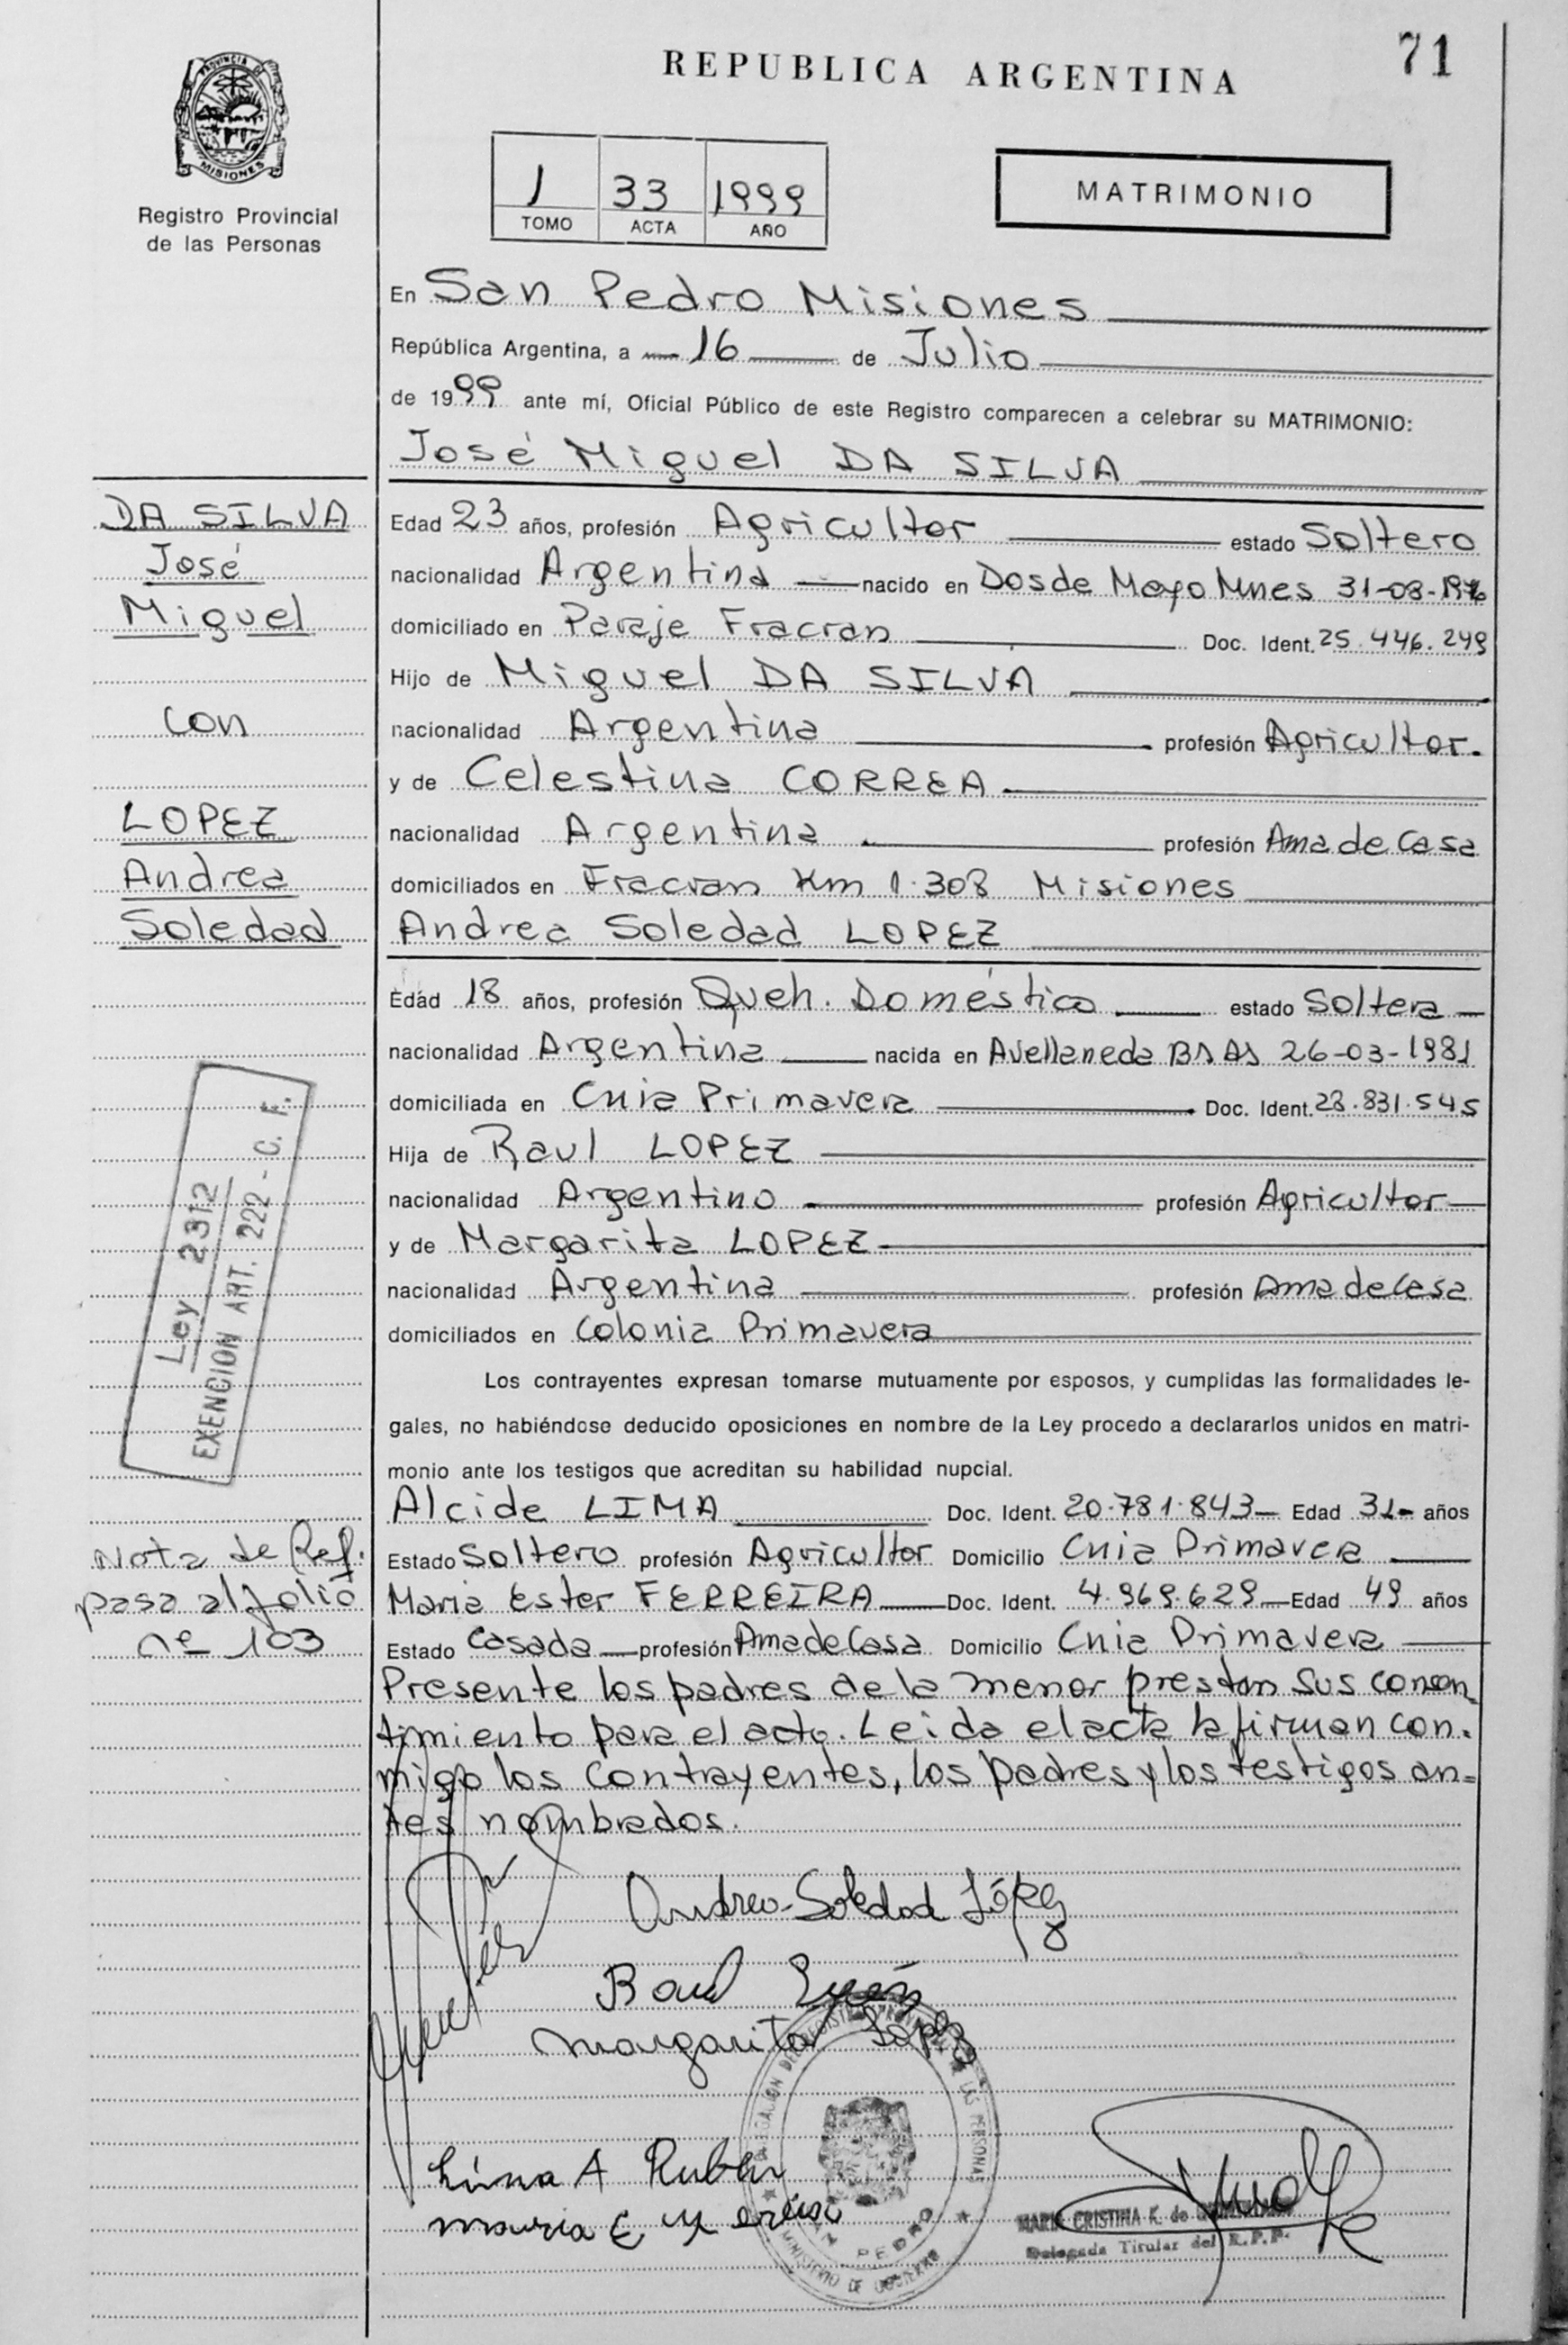 71
REPUBLICA ARGENTINA
PROVINCIA DE MISIONES
Registro Provincial
de las Personas
1 33 1999
TOMO ACTA AÑO
MATRIMONIO
En San Pedro Misiones
República Argentina, a 16 de Julio
de 1999 ante mí, Oficial Público de este Registro comparecen a celebrar su MATRIMONIO:
José Miguel DA SILVA
DA SILVA
José
Miguel
con
LOPEZ
Andrea
Soledad
Edad 23 años, profesión Agricultor estado Soltero
nacionalidad Argentina nacido en Dos de Mayo Mnes 31-03-1976
domiciliado en Paraje Fracran Doc. Ident. 25.446.249
Hijo de Miguel DA SILVA
nacionalidad Argentina profesión Agricultor.
y de Celestina CORREA
nacionalidad Argentina profesión Ama de Casa
domiciliados en Fracran Km 1.308 Misiones
Andrea Soledad LOPEZ
Edad 18 años, profesión Queh. Doméstico estado Soltera
nacionalidad Argentina nacida en Avellaneda BS AS 26-03-1981
domiciliada en Cnia Primavera Doc. Ident. 28.831.545
Hija de Raul LOPEZ
nacionalidad Argentino profesión Agricultor
y de Margarita LOPEZ
nacionalidad Argentina profesión Ama de Casa
domiciliados en Colonia Primavera
Ley 2312
EXENCION ART. 222 - C. F.
Los contrayentes expresan tomarse mutuamente por esposos, y cumplidas las formalidades le-
gales, no habiéndose deducido oposiciones en nombre de la Ley procedo a declararlos unidos en matri-
monio ante los testigos que acreditan su habilidad nupcial.
Alcide LIMA Doc. Ident. 20.781.843 Edad 31 años
Estado Soltero profesión Agricultor Domicilio Cnia Primavera
Maria Ester FERREIRA Doc. Ident. 4.969.629 Edad 49 años
Estado Casada profesión Ama de Casa Domicilio Cnia Primavera
Nota de Ref.
pasa al folio
nº 103
Presente los padres de la menor prestan sus consen
timiento para el acto. Leida el acta la firman con.
migo los contrayentes, los padres y los testigos an=
tes nombrados.
Andrea Soledad López
Raul
Margarita López
Lima A Ruben
maria E
DELEGACION DEL REGISTRO PROVINCIAL DE LAS PERSONAS
SAN PEDRO
MINISTERIO DE GOBIERNO
MARIA CRISTINA K. de
Delegada Titular del R.P.P.